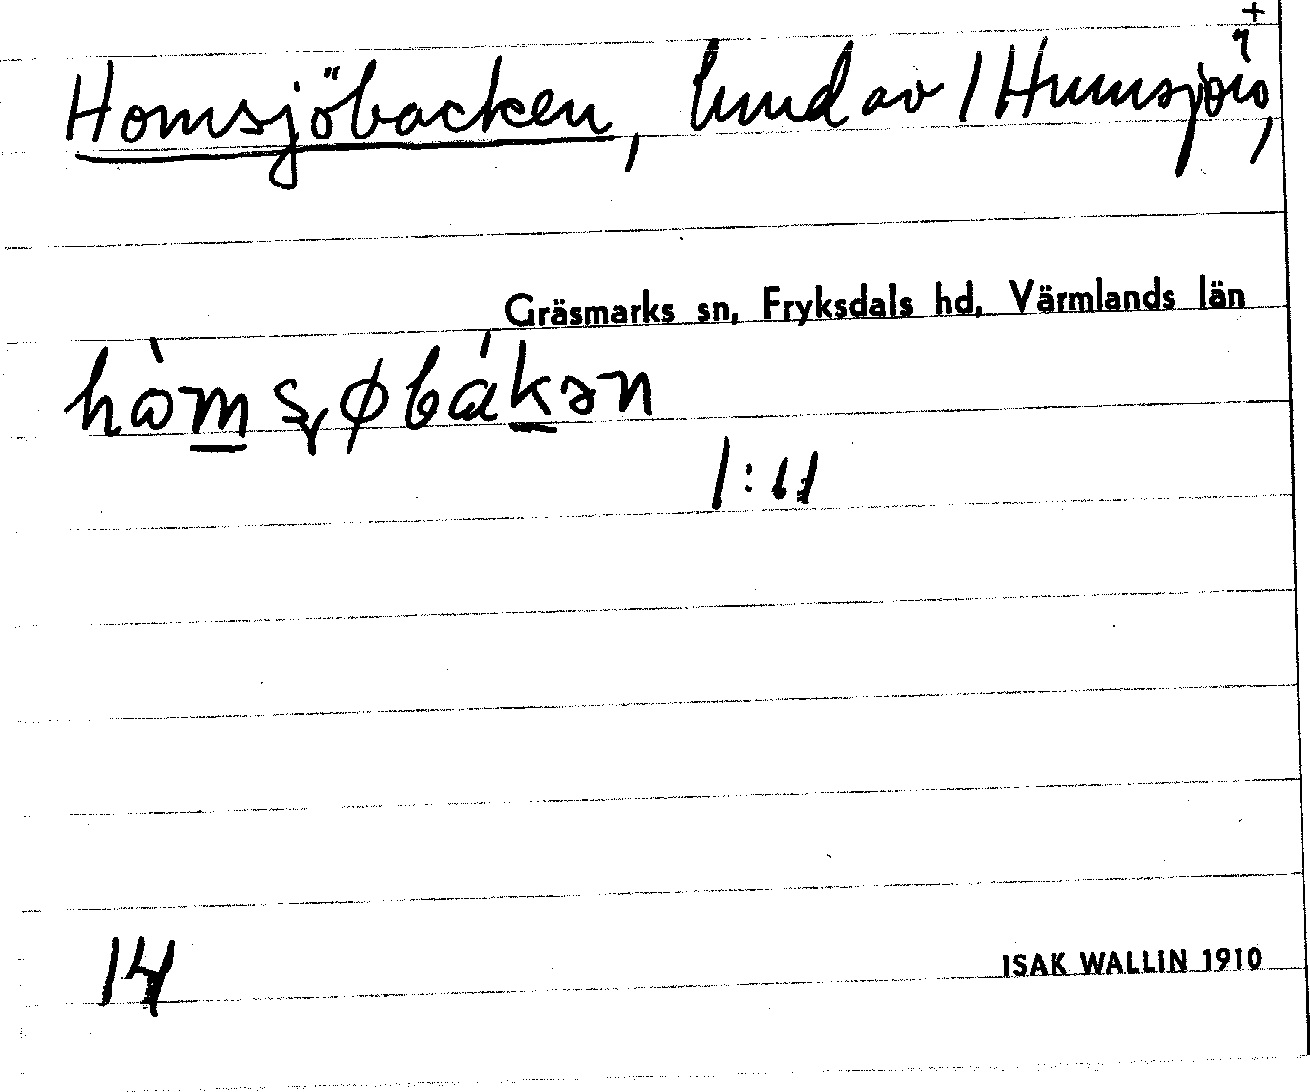 +
Homsjöbacken, lund av 1 Humsjön,
Gräsmarks sn, Fryksdals hd, Värmlands län
1:11
14
ISAK WALLIN 1910